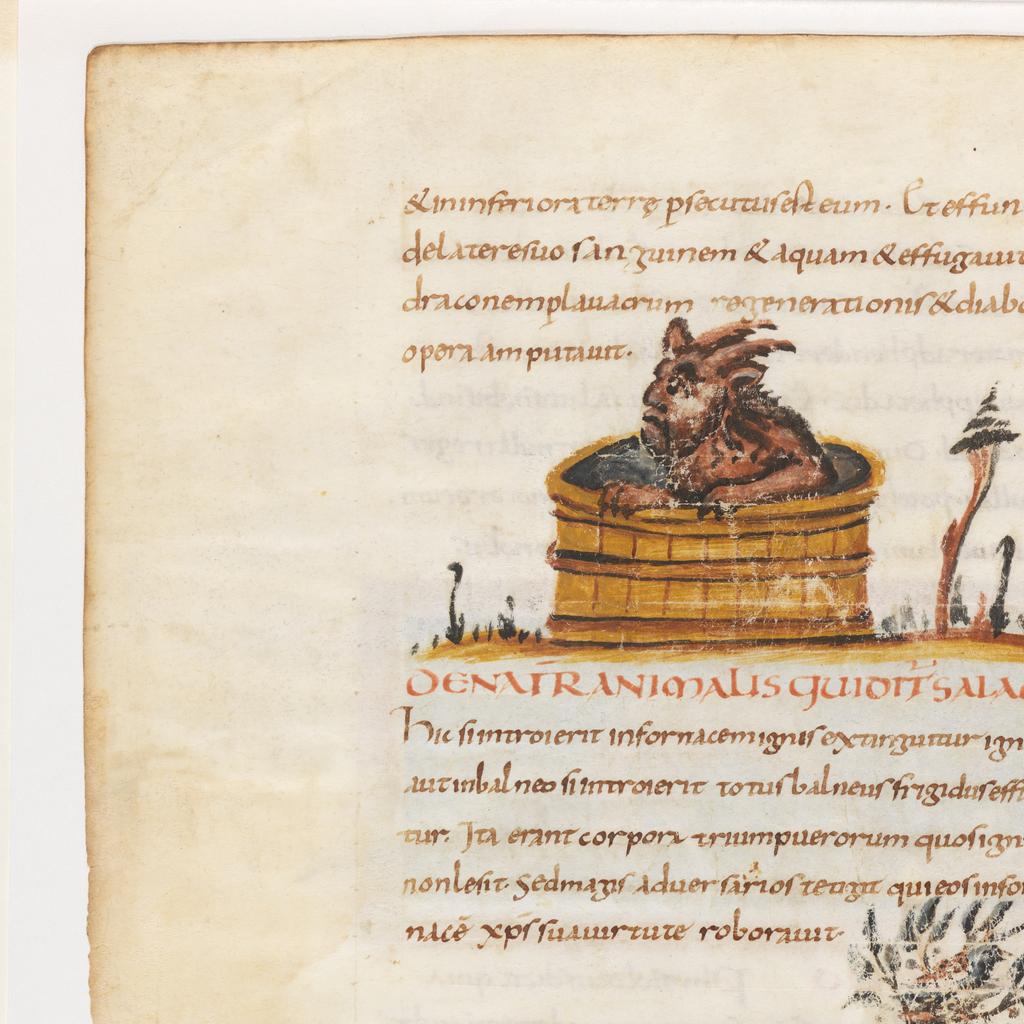 & ininferiora terrę psecutus est eum. Et effun
de latere suo sanguinem & aquam & effugauit
draconem p lauacrum regenerationis & diabo
opera amputauit.
DE NAT̄R ANIMALIS QUI DIT̄ SALA
Hic si introierit infornacem ignis extinguitur igni
aut inbalneo si introierit totus balneus frigidus effi
tur. Ita erant corpora trium puerorum quos igni
non lesit. Sed magis aduersarios tetigit qui eos infor
nacē xp̄s sua uirtute roborauit.